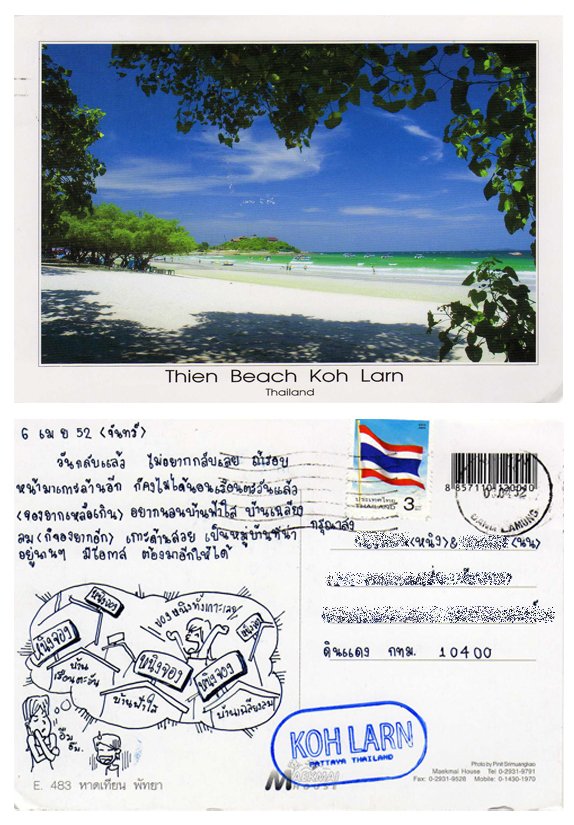 Thien Beach Koh Larn
Thailand
6 เม ย 52 <จันทร์>
วันกลับแล้ว ไม่อยากกลับเลย ถ้ารอบ
หน้ามาเกาะล้านอีก ก็คงไม่ได้นอนเรือนตะวันแล้ว
<จองยากเหลือเกิน> อยากนอนบ้านฟ้าใส บ้านเฉลียง
ลม <ก็จองยากอีก> เกาะล้านสวย เป็นหมู่บ้านที่น่า
อยู่นานๆ มีโอกาส ต้องมาอีกให้ได้
ประเทศไทย
THAILAND
3
8 857110 220010
BANG LAMUNG
กรุณาส่ง
<หนิง>& <นน>
ดินแดง กทม. 10400
จองหนิงทั้งเกาะเลย
หนิงจอง
หนิงจอง
หนิงจอง
หนิงจอง
บ้าน
เรือนตะวัน
บ้านฟ้าใส
บ้านเฉลียงลม
อืม
อืม.
KOH LARN
PATTAYA THAILAND
MAEKMAI
HOUSE
E. 483 หาดเทียน พัทยา
Photo by Pinit Srimuangkao
Maekmai House Tel 0-2931-9791
Fax: 0-2931-9528 Mobile: 0-1430-1970